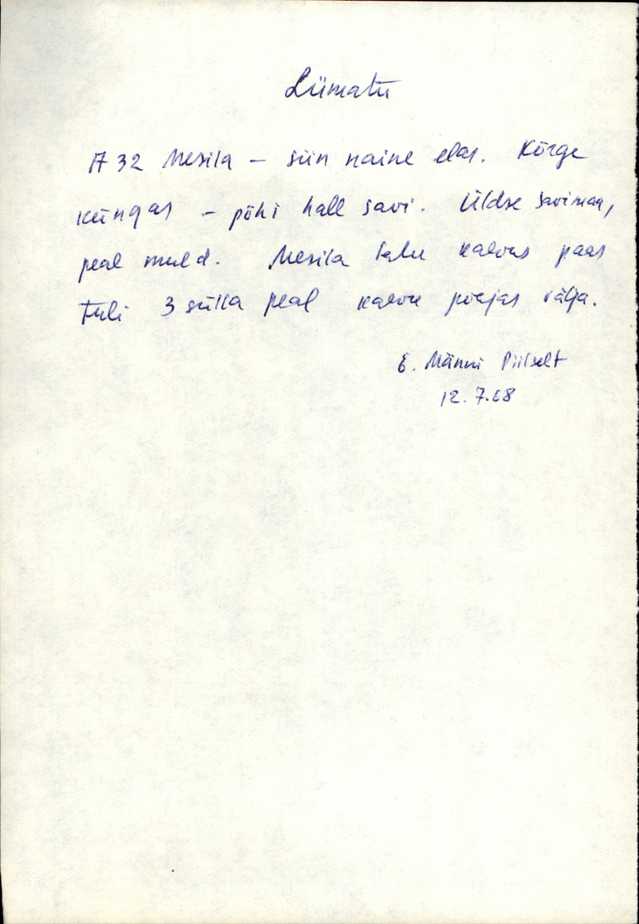 Liimatu
A 32 Mesila – siin naine elas. Kõrge
küngas – põhi hall savi. Üldse savimaa,
peal muld. Mesila talu kaevus paas
tuli 3 sülla peal kaevu põhjas välja.
E. Männi Piilselt
12.7.68